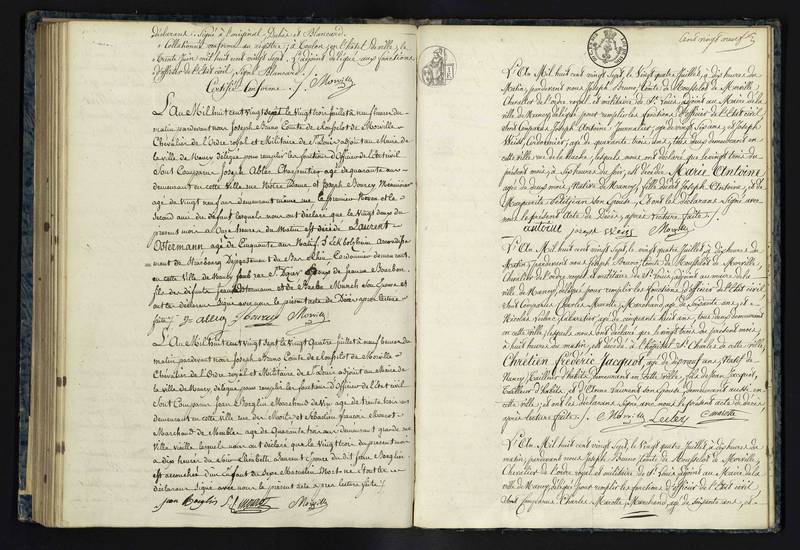 déclarans. Signé à l'original Duhié et Blancard.
Collationné conforme au registre; à Toulon, en l'hôtel de ville, le
trente juin mil huit cent vingt sept. L'adjoint délégué aux fonctions
d'officier de l'état civil, Signé Blancard.
Certifié Conforme. Morville
L'An Mil huit cent vingt sept le vingt trois Juillet à neuf heures du
matin pardevant nous Joseph Bruno Comte de Rousselot de Morville
Chevalier de l'Ordre royal et Militaire de St Louis adjoint au Maire de
la ville de Nancy délégué pour remplir les fonctions d'Officier de l'état civil
Sont Comparus Joseph Charpentier agé de quarante
demeurant en cette ville rue Notre Dame et Joseph Menuisier
agé de vingt neuf ans demeurant même rue le premier et le
Second ami du défunt lesquels nous ont déclaré que le vingt deux du
présent mois à Onze heures du Matin est décédé Laurent
Ostermann agé de Cinquante ans Natif
de Strasbourg Département du Bas Rhin Cordonnier demeurant
en cette ville de Nancy
fils de défunts Ostermann et de Barbe Son Epouse et
ont les déclarans Signé avec nous le présent acte de Décès après lecture
faite Morville
L'An Mil huit cent vingt Sept le vingt Quatre Juillet à neuf heures du
matin pardevant nous Joseph Bruno Comte de Rousselot de Morville
Chevalier de l'Ordre royal et Militaire de St Louis adjoint au Maire de
la ville de Nancy délégué pour remplir les fonctions d'Officier de l'état civil
Sont Comparus Jean Marchand de Vin agé de trente trois ans
demeurant en cette ville rue et Sébastien françois
Marchand de Meubles agé de Quarante trois ans demeurant grande rue
Ville vieille lesquels nous ont déclaré que le vingt trois du présent mois
à dix heures du Soir Elisabeth Laurent Epouse du dit Jean
est accouchée d'un Enfant du Sexe Masculin Mort-né et ont les
déclarans Signé avec nous le présent acte après lecture faite
Morville
Cent vingt neuf
L'An Mil huit cent vingt Sept, le vingt quatre Juillet, à dix heures du
Matin, pardevant nous Joseph Bruno Comte de Rousselot de Morville,
Chevalier de l'ordre royal et militaire de St Louis, adjoint au Maire de la
ville de Nancy, délégué pour remplir les fonctions d'officier de l'Etat civil,
Sont comparus Joseph Antoine, Journalier, agé de vingt six ans, et Joseph
Cordonnier, agé de quarante trois ans, tous deux demeurant en
cette ville, lesquels nous ont déclaré que le vingt trois du
présent mois, à six heures du soir, est décédée Marie Antoine
agée de deux mois, Native de Nancy, fille dudit Joseph Antoine, et de
Marguerite son Epouse, et ont les déclarans Signé avec
nous le présent Acte de Décès, après lecture faite.
antoine joseph Morville
L'An Mil huit cent vingt Sept, le vingt quatre Juillet, à dix heures du
Matin, pardevant nous Joseph Bruno Comte de Rousselot de Morville,
Chevalier de l'ordre royal et militaire de St Louis, adjoint au maire de la
ville de Nancy, délégué pour remplir les fonctions d'officier de l'Etat civil,
Sont comparus Charles Marotte, Marchand, agé de soixante ans, et
Nicolas agé de cinquante huit ans, tous deux demeurant
en cette ville, lesquels nous ont déclaré que le vingt trois du présent mois,
à huit heures du matin, est décédé à l'hôpital St Charles de cette ville,
Chrétien Frédéric Jacquot, agé de dix neuf ans, Natif de
Nancy, Tailleur d'habits, demeurant en cette ville, fils de Jean Jacquot,
Tailleur d'habits, et d'Anne Laurent son Epouse, demeurant aussi en
cette ville; et ont les déclarans Signé avec nous le présent acte de décès,
après lecture faite. Morville Leclerc marotte
L'An Mil huit cent vingt Sept, le vingt quatre Juillet, à dix heures du
matin, pardevant nous Joseph Bruno Comte de Rousselot de Morville,
Chevalier de l'ordre royal et militaire de St Louis, adjoint au Maire de la
ville de Nancy, délégué pour remplir les fonctions d'officier de l'Etat civil,
Sont comparus Charles Marotte, Marchand, agé de soixante ans, et